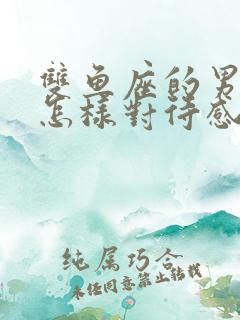 雙魚座的男
怎樣對待感
纯属巧合
未经同意禁止转载